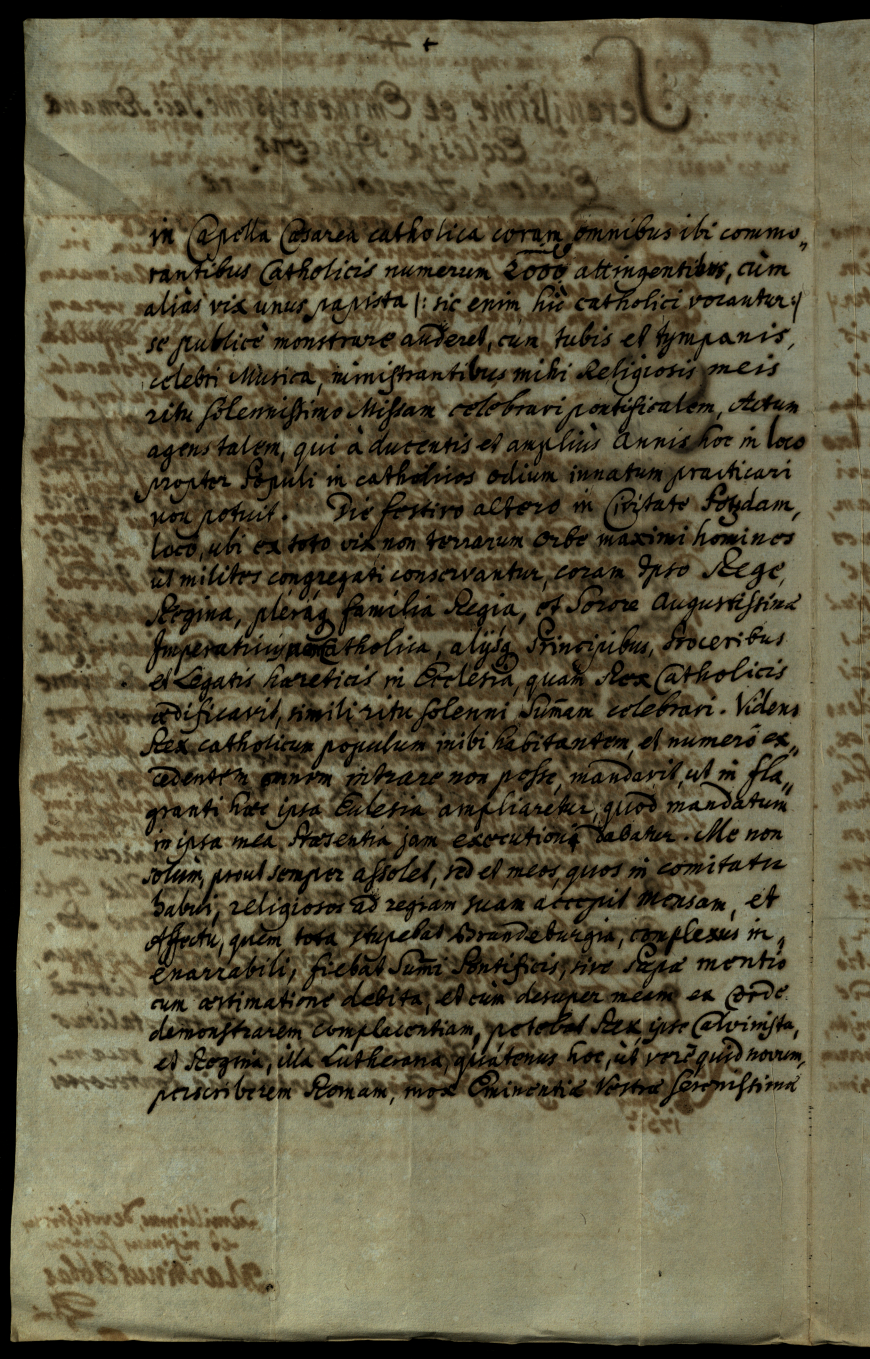 in Capella Cæsarea catholica coram omnibus ibi commo„
rantibus Catholicis numerum 2000 attingentibus, cùm
aliàs vix unus papista (: sic enim hîc catholici vocantur :)
se publicè monstrare auderet, cùm tubis et tympanis,
celebri Musica, ministrantibus mihi Religiosis meis
ritu solennissimo Missam celebravi pontificalem, Actum
agens talem, qui à ducentis et ampliùs Annis hoc in loco
propter Populi in catholicos odium innatum practicari
non potuit. Die festivo altero in Civitate Potzdam,
loco, ubi ex toto vix non terrarum orbe maximi homines
ut milites congregati conservantur, coram Ipso Rege,
Regina, pleraq familia Regia, et Sorore Augustissimæ
Imperatricis Catholica, alijsq Principibus, Proceribus
et Legatis hæreticis in Ecclesia, quam Rex Catholicis
ædificavit, simili ritu solenni Sum̄am celebravi. Videns
Rex catholicum populum inibi habitantem, et numerô ex„
cedentem intrare non posse, mandavit, ut in fla„
granti hæc ipsa Ecclesia ampliaretur, quod mandatum
in ipsa mea Præsentia jam executioni dabatur. Me non
solùm, prout semper assolet, sed et meos, quos in comitatu
habui, religiosos ad regiam suam accepit Mensam, et
affectu, quem tota stupebat Brandeburgia, complexus in„
enarrabili, fiebat Sum̄i Pontificis, sive Papæ mentio
cum æstimatione debita, et cùm desuper meam ex Corde
demonstrarem complacentiam, petebat Rex ipse Calvinista,
et Regina, illa Lutherana, quatenus hoc, ùt verè quid novum,
perscriberem Romam, mox Eminentiæ Vestræ serenissimæ